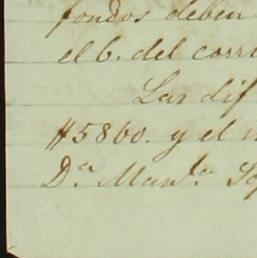 fondos deben
el 6. del corri
Las dif
#5860. y el
D.ª Man.la